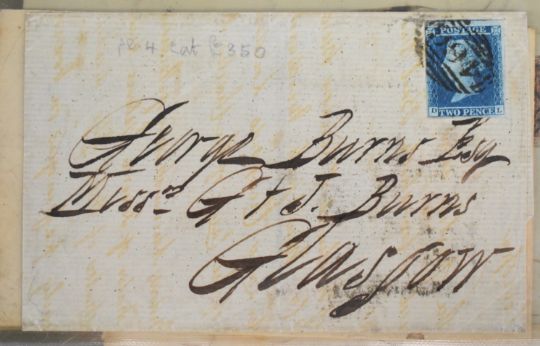 pl 4 cat £350
POSTAGE
TWO PENCE
George Burns Esq
Messrs G & J. Burns
Glasgow